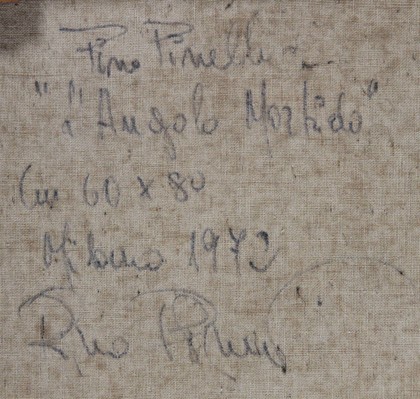 Pino Pinelli
"L'Angolo Morbido"
Cm 60 x 80
Milano 1973
Pino Pinelli